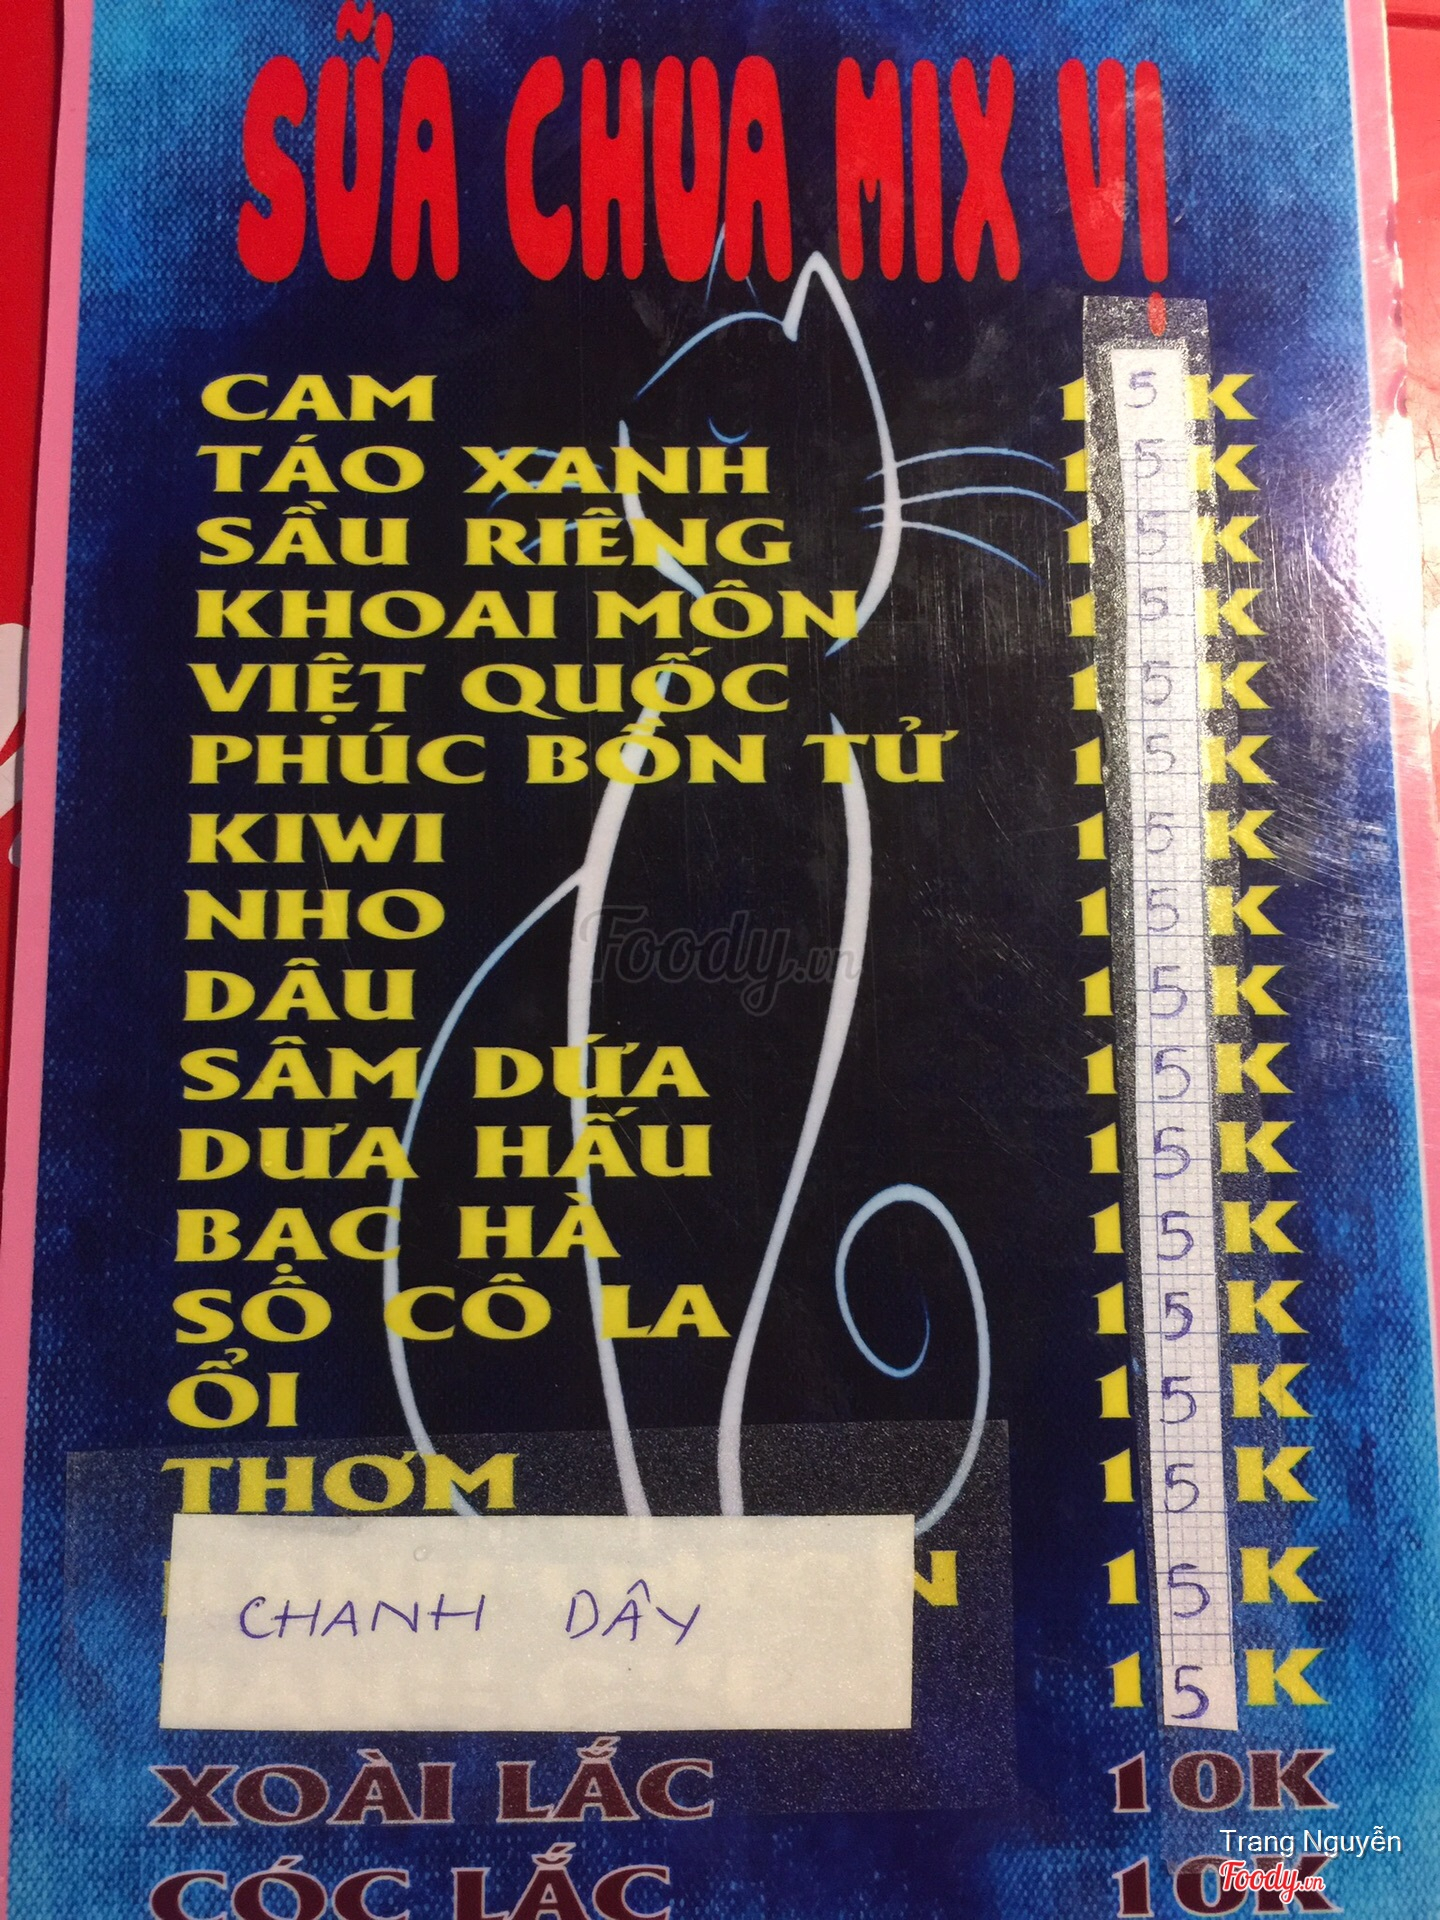 SỮA CHUA MIX VỊ
CAM 15K
TÁO XANH 15K
SẦU RIÊNG 15K
KHOAI MÔN 15K
VIỆT QUỐC 15K
PHÚC BỒN TỬ 15K
KIWI 15K
NHO 15K
DÂU 15K
SÂM DỨA 15K
DƯA HẤU 15K
BẠC HÀ 15K
SÔ CÔ LA 15K
ỔI 15K
THƠM 15K
15K
CHANH DÂY
15K
XOÀI LẮC 10K
CÓC LẮC 10K
Foody.vn
Trang Nguyễn
Foody.vn